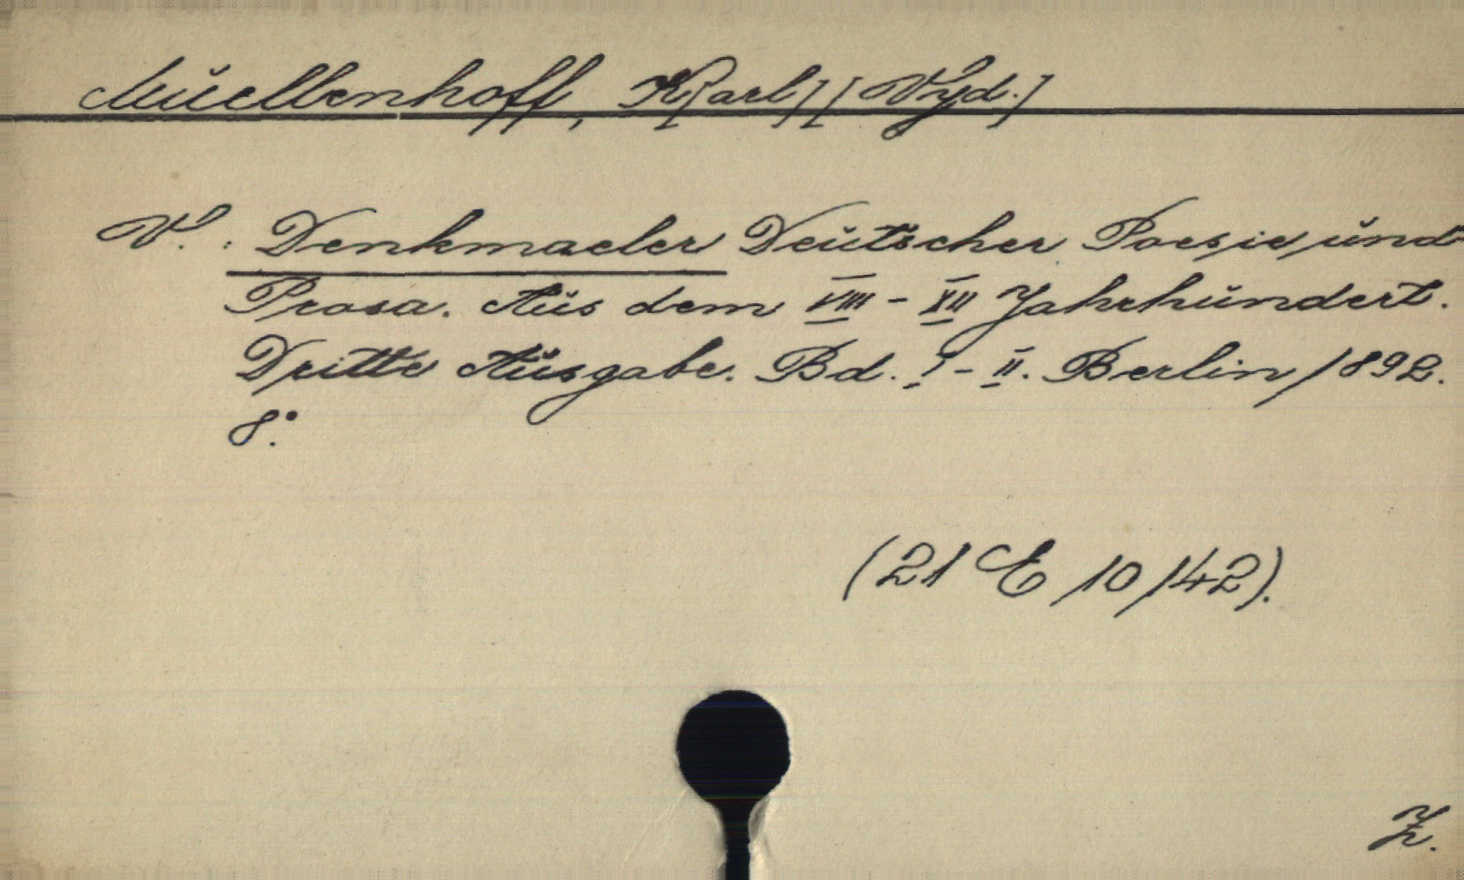 Muellenhoff, K[arl] [Vyd.]
V.: Denkmaeler Deutscher Poesie und
Prosa. Aus dem VIII - XII Jahrhundert.
Dritte Ausgabe. Bd. I - II. Berlin 1892.
8°.
(21 E 10/42).
Ž.